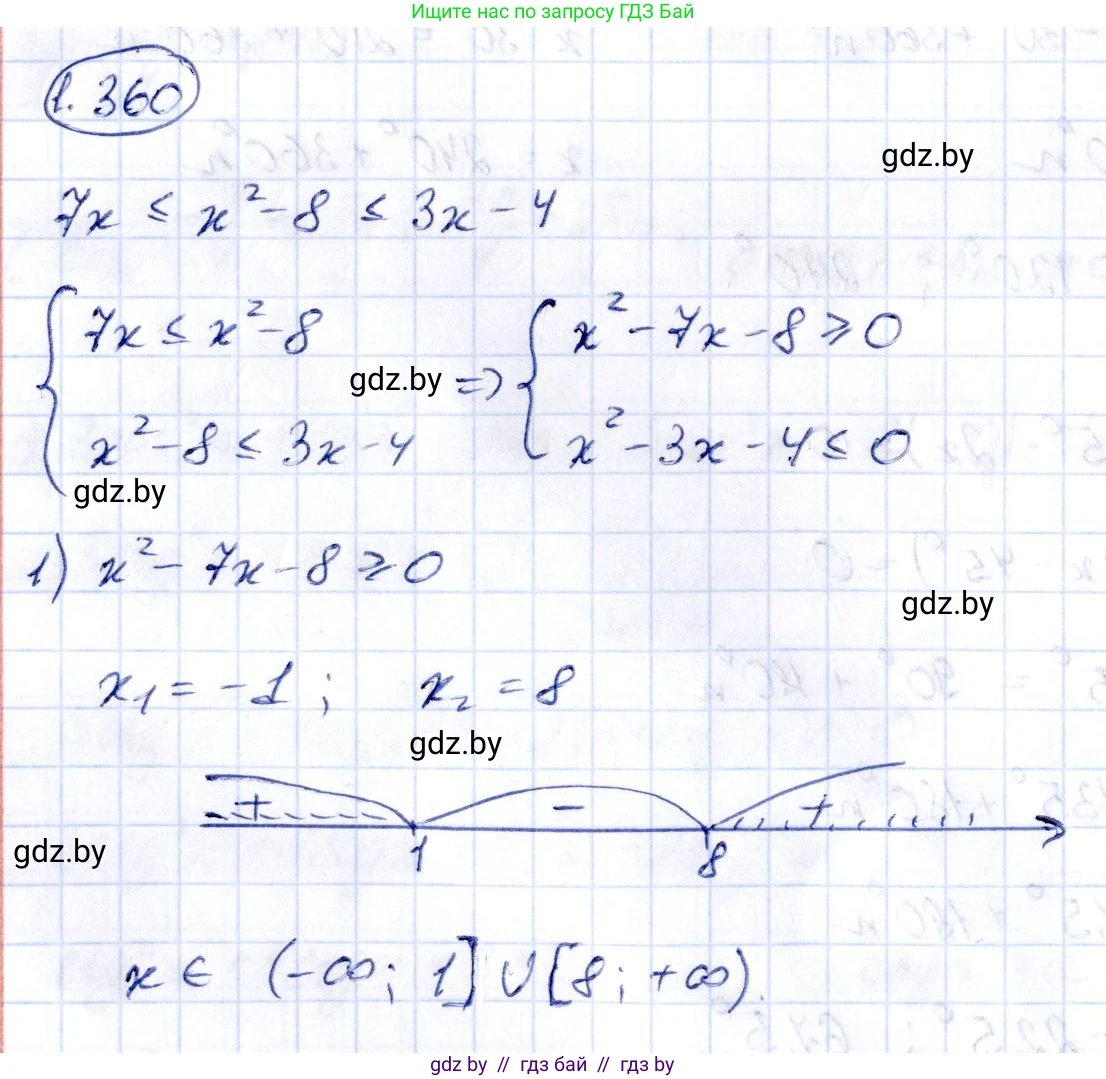 Ищите нас по запросу ГДЗ Бай
1.360
gdz.by
7x ≤ x²-8 ≤ 3x-4
{ 7x ≤ x²-8
x²-8 ≤ 3x-4
gdz.by
=> { x²-7x-8 ≥ 0
x²-3x-4 ≤ 0
gdz.by
1) x²-7x-8 ≥ 0
gdz.by
x₁ = -1; x₂ = 8
gdz.by
+ - +
1 8
gdz.by
x ∈ (-∞; 1] ∪ [8; +∞).
gdz.by // гдз бай // гдз by